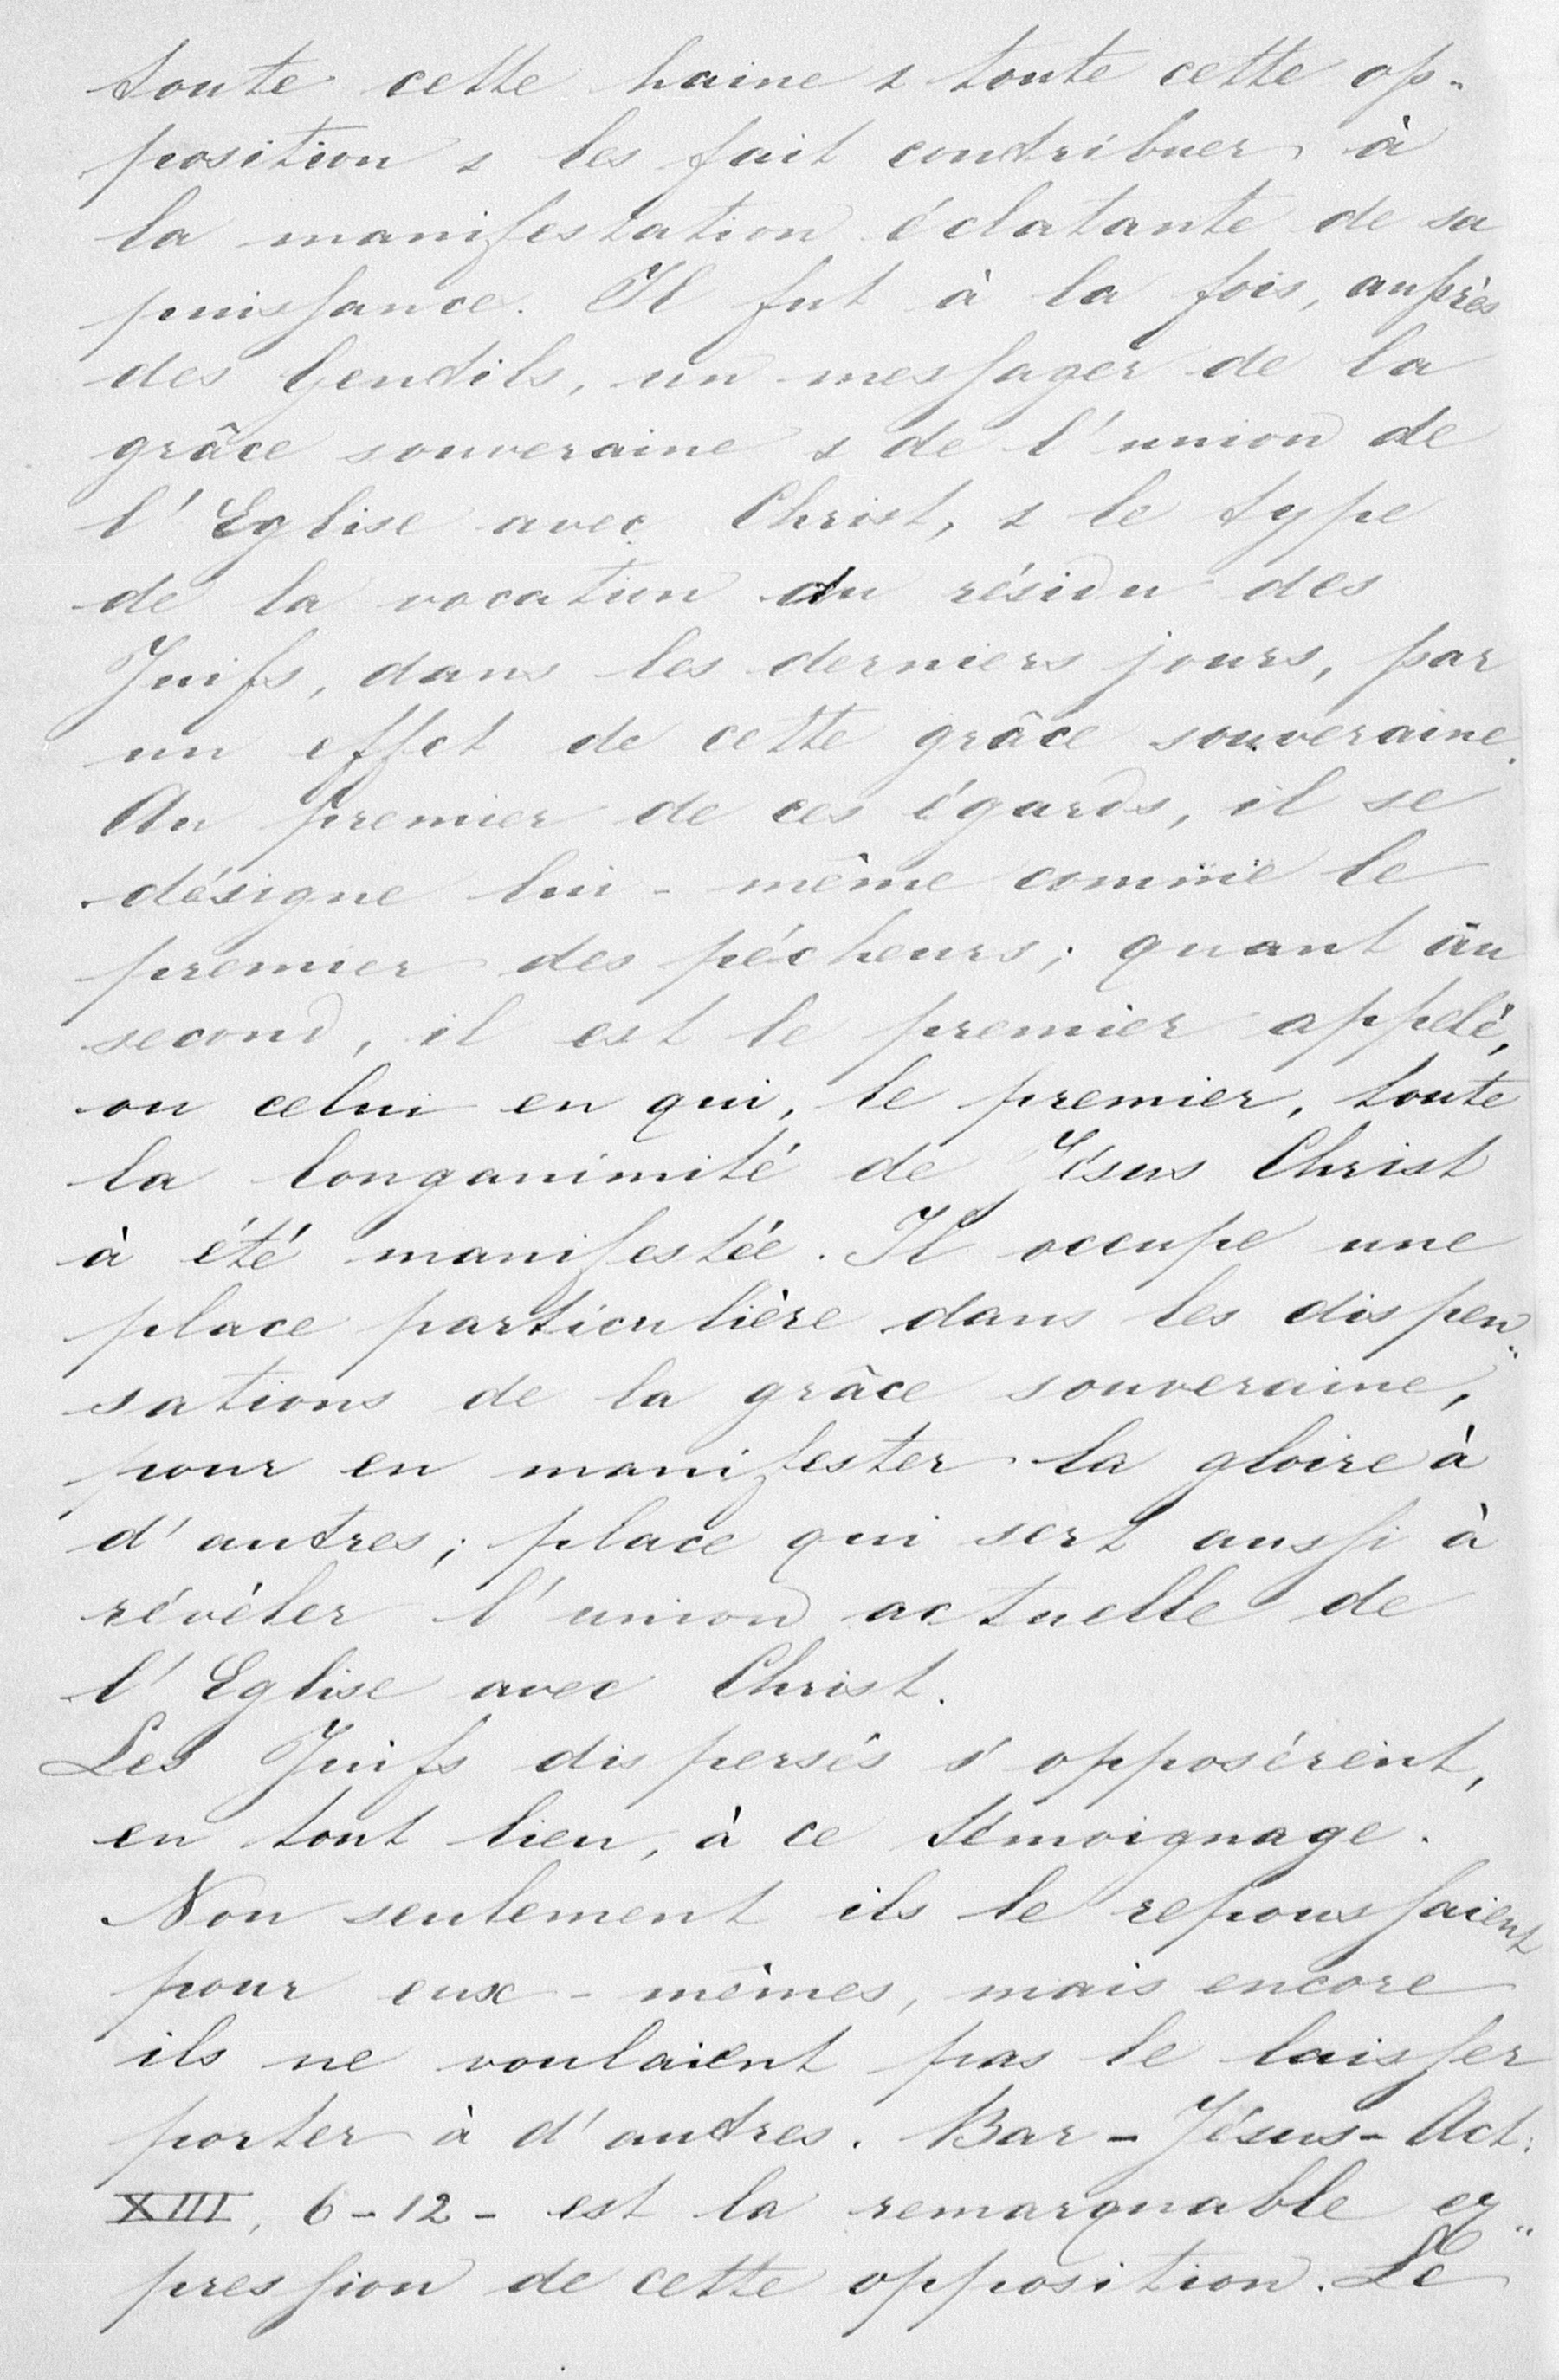 toute cette haine & toute cette op„
position & les fait contribuer à
la manifestation éclatante de sa
puissance. Il fut à la fois, auprès
des Gentils, un messager de la
grâce souveraine & de l'union de
l'Eglise avec Christ, & le type
de la vocation du résidu des
Juifs, dans les derniers jours, par
un effet de cette grâce souveraine.
Au premier de ces égards, il se
désigne lui-même comme le
premier des pécheurs; quant au
second, il est le premier appelé,
ou celui en qui, le premier, toute
la longanimité de Jésus Christ
à été manifestée. Il occupe une
place particulière dans les dispen„
sations de la grâce souveraine,
pour en manifester la gloire à
d'autres; place qui sert aussi à
révéler l'union actuelle de
l'Eglise avec Christ.
Les Juifs dispersés s'opposèrent,
en tout lieu, à ce témoignage.
Non seulement ils le repoussaient
pour eux-mêmes, mais encore
ils ne voulaient pas le laisser
porter à d'autres. Bar-Jésus-Act.
XIII, 6-12- est la remarquable ex„
pression de cette opposition. Le